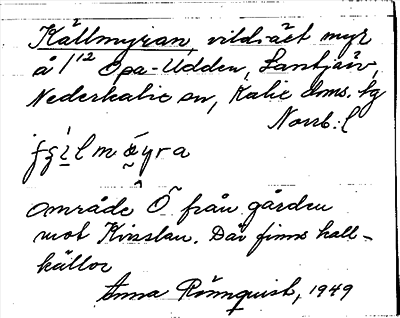 Källmyran, vidsträckt myr
å 1/12 Opa-Udden, Lantjärv,
Nederkalix sn, Kalix doms. tg
Norrb. l
område Ö från gården
mot Kinslan. Där finns kall-
källor
Anna Rönnquist, 1949